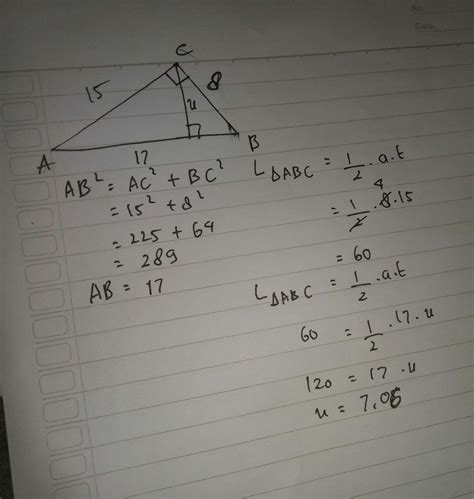 No
Date
C
15
8
u
A
B
17
AB² = AC² + BC²
= 15² + 8²
= 225 + 64
= 289
AB = 17
L△ABC = 1/2 . a.t
= 1/2 . 8.15
4
= 60
L△ABC = 1/2 . a.t
60 = 1/2 . 17 . u
120 = 17 . u
u = 7,05